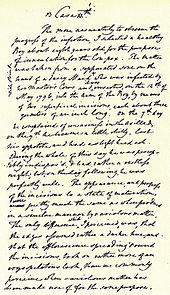 Case
The more accurately to observe the
progress of the infection, I selected a healthy
Boy about eight years old for the purpose
of inoculation for the Cow Pox. The matter
was taken from a sore on the
hand of a dairy Maid who was infected by
her masters Cows and inserted on the 14th of
May 1796 into the arm of the Boy by means
of two superficial incisions, each about three
quarters of an inch long. On the 7th day
he complained of uneasiness in the axilla, & on
the 9th he became a little chilly, lost
his appetite, and had a slight head ach
During the whole of this day he was percep-
tibly indisposed, & had rather a restless
night; but on the day following he was
perfectly well. The appearance and progress
of the incisions to a state of maturation
were pretty much the same as when produced
in a similar manner by variolous matter.
The only difference I perceived was that
the edges assumed rather a darker hue, and
that the efflorescence spreading round
the incisions, took on rather more of an
erysipelatous look, than we commonly
perceive when variolous matter has
been made use of for the same purpose.